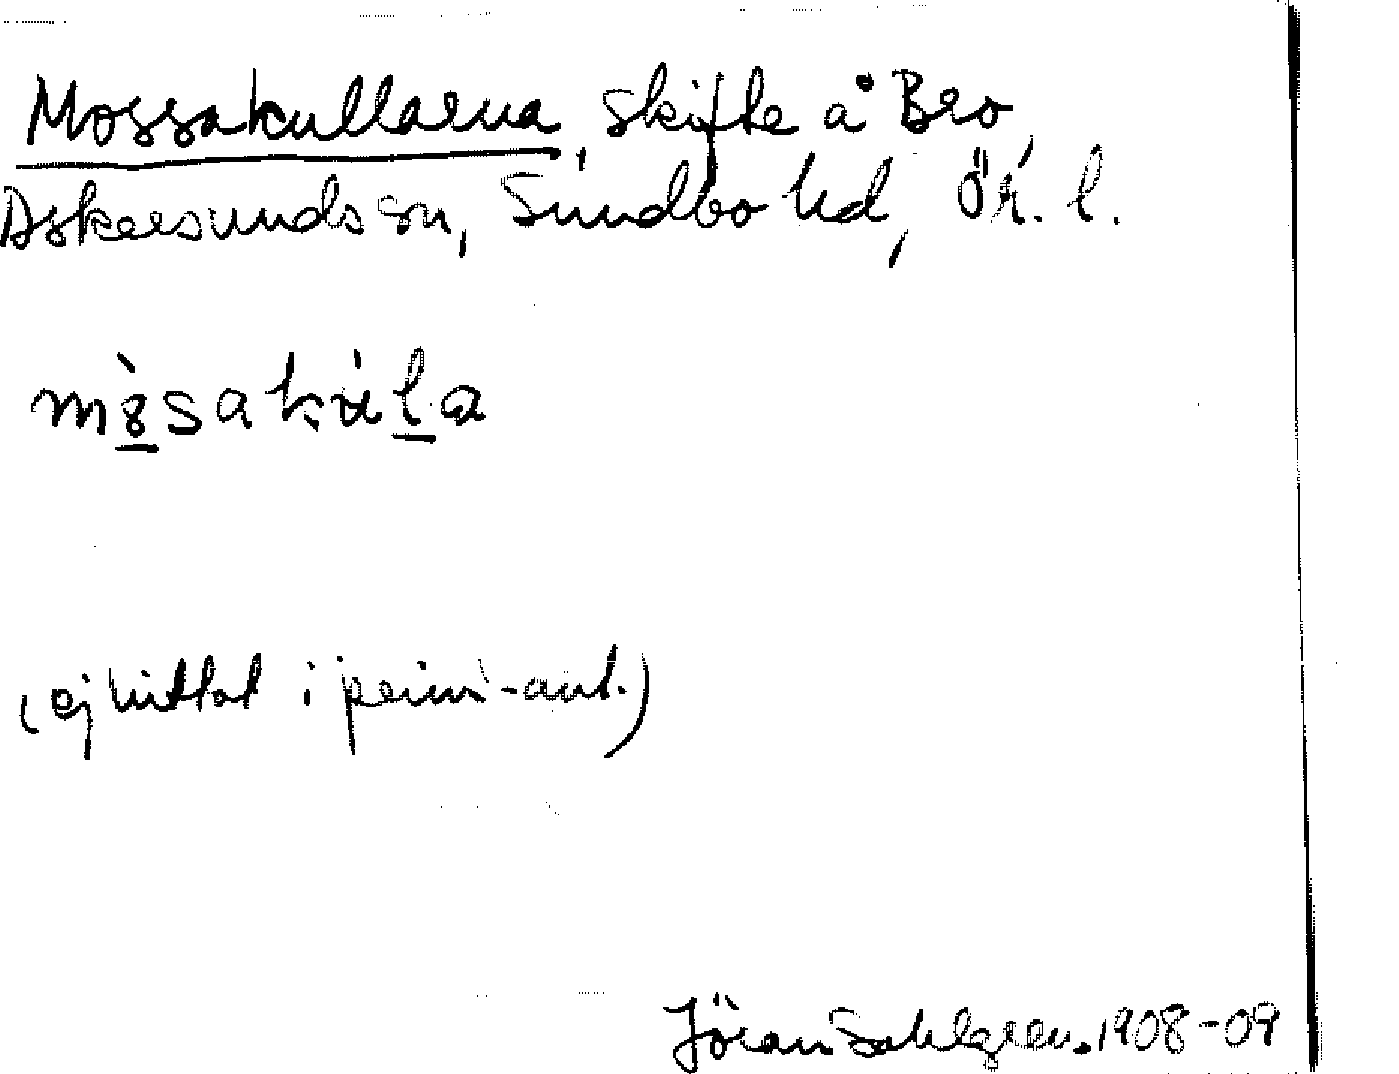 Mossakullarna, skifte å Bro
Askersunds sn, Sundbo hd, Ör. l.
mòsakùla
(ej hittat i primäranteckn.)
Jöran Sahlgren. 1908-09